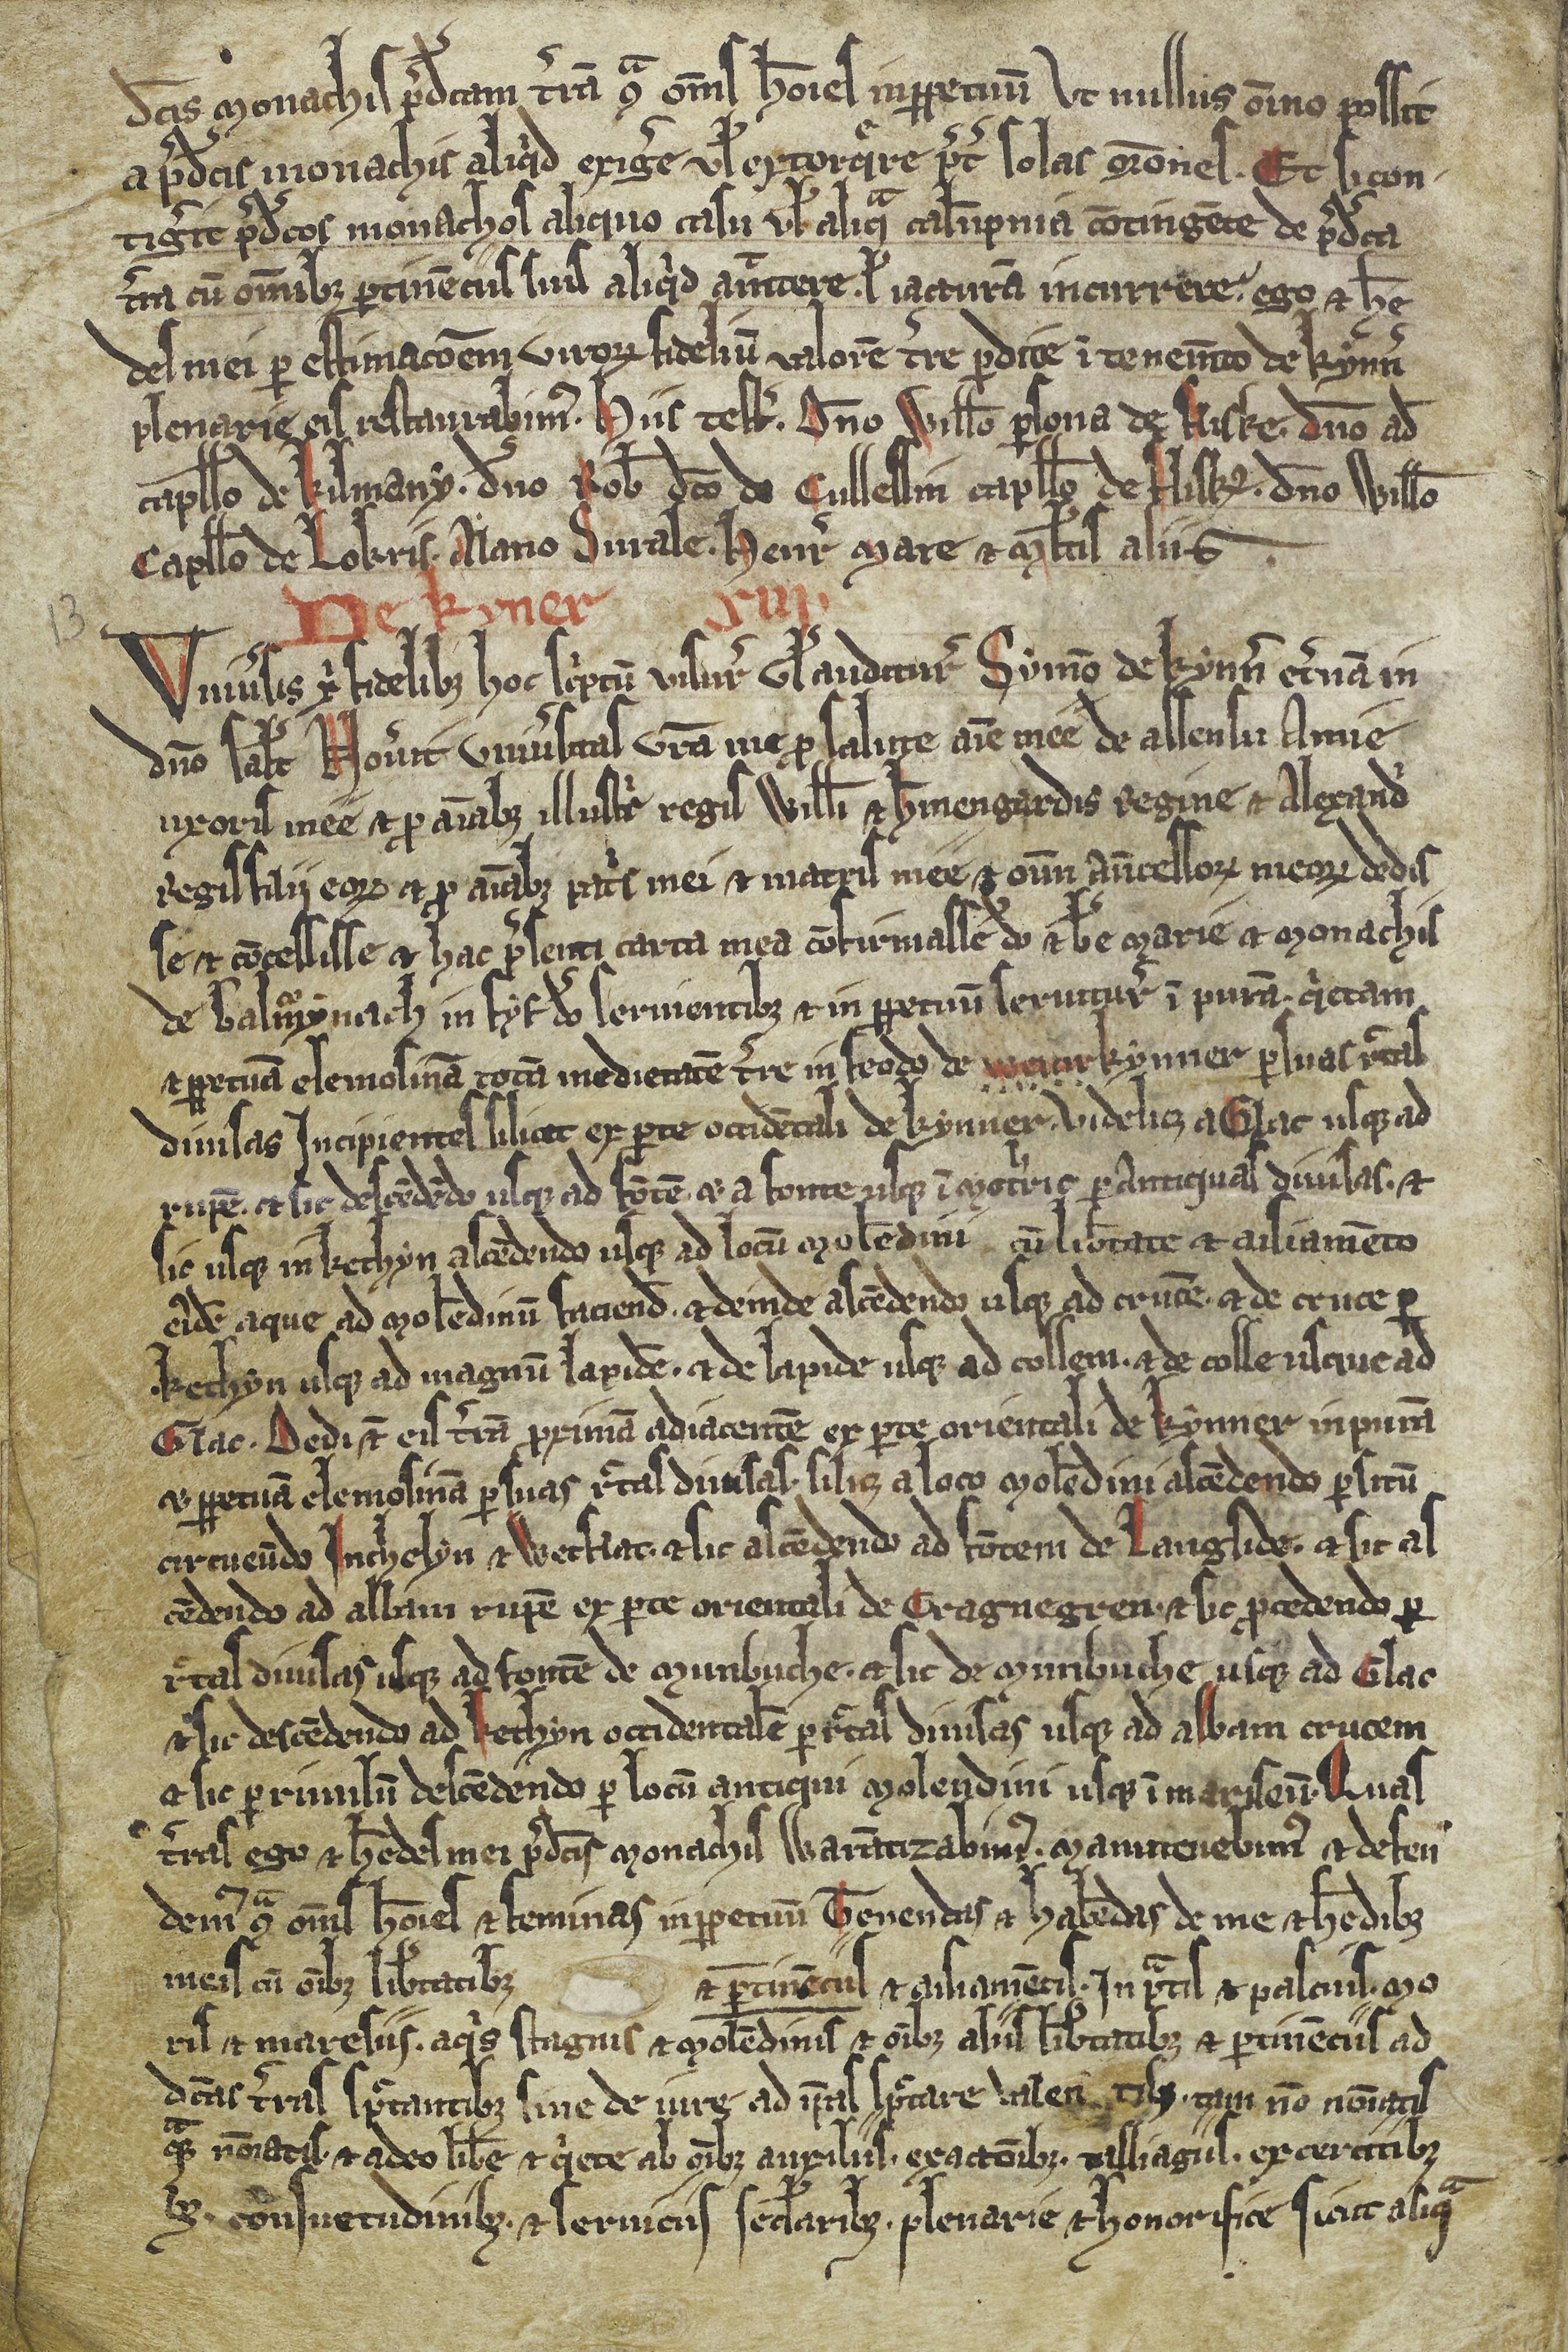 dcis monachis p̄dcam t̄rā 9ᵃ om̄s hoīes inꝑpetuū Vt nullus oīno possit
a p̄dcis monachis aliqͥd exiḡe ul̄ extorqͥre p̄t solas orōnes. Et si con
tiḡit p̄dcos monachos aliquo casu ul̄ aliqᵃ calūpnia cōtingēte de p̄dca
t̄ra cū om̄ibꝫ ꝑtinēciis suis aliqͥd amͥttere. l̄ iacturā incurrere. ego ⁊ h̄e
des mei per estimacōem viroꝝ fideliū valorē t̄re p̄dicte ī tenem̄to de kyn̄
plenarie eis restaurabimꝰ. Hiis test̄. Dn̄o Will̄o ꝑsona de fliske. dn̄o ad̄
capll̄o de kilmany. dn̄o Rob̄ dc̄o de Cullessin capll̄o de flisk̄. dn̄o Will̄o
Capll̄o de Lokris. Alano Suale. Henr̄ Mare ⁊ Ml̄tis aliis.
De kyner xiij
13
Vniūsis xͥ fidelibꝫ hoc scͥptū visur̄ ul̄ auditur̄ Symō de kyn̄ et̄nā in
dn̄o sal̄t Nou̅it vniūsitas vr̄a me ꝓ salute aīe mee de assensu Annie
uxoris mee ⁊ ꝓ aīabꝫ illustr̄ regis Will̄i ⁊ h̄mengardis Regine ⁊ Alexandͥ
Regis filij eoꝝ ⁊ ꝓ aīabꝫ patͥs mei ⁊ matris mee ⁊ om̄ Ān̄cessoꝝ meoꝝ dedis
se ⁊ cōcessisse ⁊ hac p̄senti carta mea cōfirmasse dō ⁊ b̄e Marie ⁊ Monachis
de balm̄ynach in fyf dō seruientibꝫ ⁊ in ꝑpetuū seruitur̄ ī purā. qͥetam
⁊ ꝑpetuā elemosinā totā medietatē t̄re in feodo de kynner ꝑ suas r̄tas
diuisas Incipientes silicet ex ꝑte occidētali de kynner. videlicꝫ a Glac usqꝫ ad
rupē. ⁊ sic descēdēdo usqꝫ ad fōtē. ⁊ a fonte usqꝫ ī Mot̄ric ꝑ Antiquas diuisas. ⁊
sic usqꝫ in kethyn ascēdendo usqꝫ ad locū Molēdini cū lib̄tate ⁊ aisiamēto
eͥdē aque ad Molēdinū faciend̄. ⁊ deinde ascēdendo usqꝫ ad crucē. ⁊ de cruce ꝑ
kethyn usqꝫ ad magnū lapidē. ⁊ de lapide usqꝫ ad collem. ⁊ de colle usque ad
Glac. Dedi ⁊ eis t̄rā ꝓximā adiacentē ex ꝑte orientali de kynner in purā
⁊ ꝑpetuā elemosinā ꝑ suas r̄tas diuisas. silicꝫ a loco Molēdini ascēdendo ꝑ sicū
circueūdo Inchelyn ⁊ Wetflat. ⁊ sic ascēdendo ad fōtem de Langside. ⁊ sic as
cēdendo ad albam rupē ex ꝑte orientali de Cragnegren. ⁊ sic ꝓcedendo ꝑ
r̄tas diuisas usqꝫ ad fontē de Munbuche. ⁊ sic de Munbuche usqꝫ ad Glac
⁊ sic descēdendo ad kethyn occidentalē ꝑ r̄tas diuisas usqꝫ ad albam crucem
⁊ sic ꝑ riuulū descēdendo ꝑ locū antiqui Molendini usqꝫ ī mariseū. Quas
t̄ras ego ⁊ h̄edes mei p̄dcis Monachis Warātizabimꝰ. Manutenebimꝰ ⁊ defen
demꝰ 9ᵃ om̄s hoīes ⁊ feminas inꝑpetuū Tenendas ⁊ habēdas de me ⁊ h̄edibꝫ
meis cū oībꝫ lib̄tatibꝫ ⁊ ꝑtinēciis ⁊ aisiamētis. In pᵃtis ⁊ pascuis. Mo
ris ⁊ maresiis. aqͥs stagnis ⁊ Molēdinis ⁊ oībꝫ aliis lib̄tatibꝫ ⁊ ꝑtinēciis ad
dc̄as t̄ras sp̄tantibꝫ siue de iure ad ip̄as sp̄tare valen tibꝫ. tam nō noīatis
qᵃꝫ noīatis. ⁊ adeo lib̄e ⁊ qͥete ab oībꝫ auxiliis. exactōibꝫ. talliagiis. exercitibꝫ
bꝫ. consuetudinibꝫ. ⁊ seruiciis secl̄aribꝫ. plenarie ⁊ honorifice sicut aliqᵃ